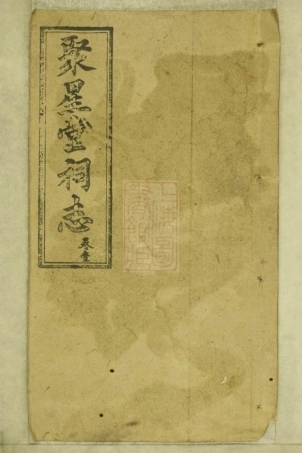 聚星堂祠志
卷壹